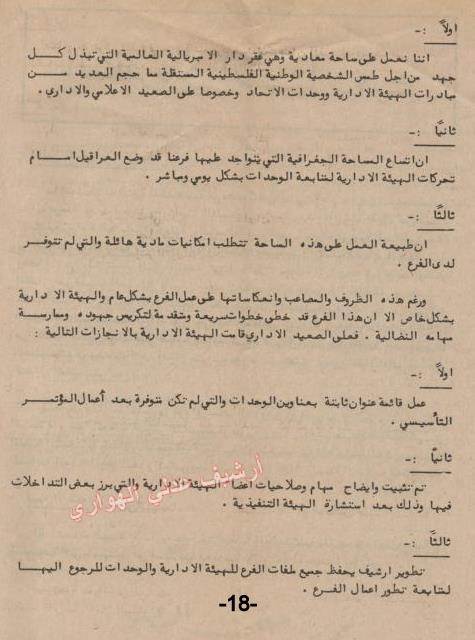 اولاً :-
اننا نعمل على ساحة معادية وهي عقر دار الامبريالية العالمية التي تبذل كل
جهد من اجل طمس الشخصية الوطنية الفلسطينية المستقلة مما حجم العديد من
مبادرات الهيئة الادارية ووحدات الاتحاد وخصوصا على الصعيد الاعلامي والاداري .
ثانيًا :-
ان اتساع المساحة الجغرافية التي يتواجد عليها فرعنا قد وضع العراقيل امام
تحركات الهيئة الادارية لمتابعة الوحدات بشكل يومي ومباشر .
ثالثًا :-
ان طبيعة العمل على هذه الساحة تتطلب امكانيات مادية هائلة والتي لم تتوفر
لدى الفرع .
ورغم هذه الظروف والمصاعب وانعكاساتها على عمل الفرع بشكل عام والهيئة الادارية
بشكل خاص الا ان هذا الفرع قد خطى خطوات سريعة ومتقدمة لتكريس جهوده وممارسة
مهامه النضالية . فعلى الصعيد الاداري قامت الهيئة الادارية بالانجازات التالية :
اولاً :-
عمل قائمة عنوان ثابتة بعناوين الوحدات والتي لم تكن متوفرة بعد أعمال المؤتمر
التأسيسي .
ثانيًا :-
تم تثبيت وايضاح مهام وصلاحيات اعضاء الهيئة الادارية والتي برز بعض التداخلات
فيها وذلك بعد استشارة الهيئة التنفيذية .
أرشيف علي الهواري
ثالثًا :-
تطوير ارشيف يحفظ جميع ملفات الفرع للهيئة الادارية والوحدات للرجوع اليها
لمتابعة تطور اعمال الفرع .
-18-